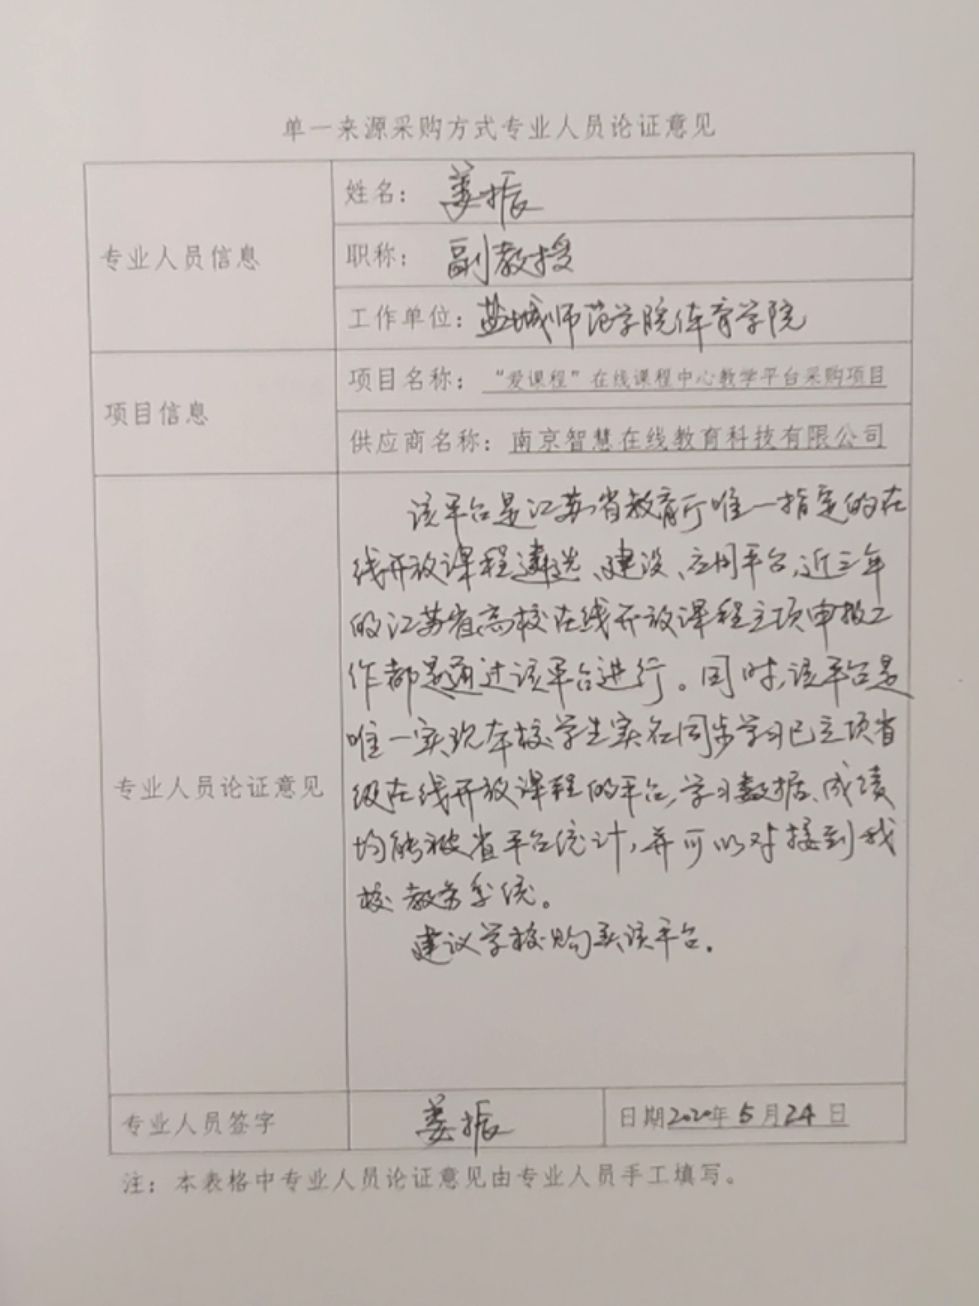 单一来源采购方式专业人员论证意见
专业人员信息
姓名：姜振
职称：副教授
工作单位：盐城师范学院体育学院
项目信息
项目名称：“爱课程”在线课程中心教学平台采购项目
供应商名称：南京智慧在线教育科技有限公司
专业人员论证意见
该平台是江苏省教育厅唯一指定的在
线开放课程遴选、建设、应用平台,近三年
的江苏省高校在线开放课程立项申报工
作都是通过该平台进行。同时,该平台是
唯一实现本校学生实名同步学习已立项省
级在线开放课程的平台,学习数据、成绩
均能被省平台统计,并可以对接到我
校教务系统。
建议学校购买该平台.
专业人员签字
姜振
日期2020年5月24日
注：本表格中专业人员论证意见由专业人员手工填写。